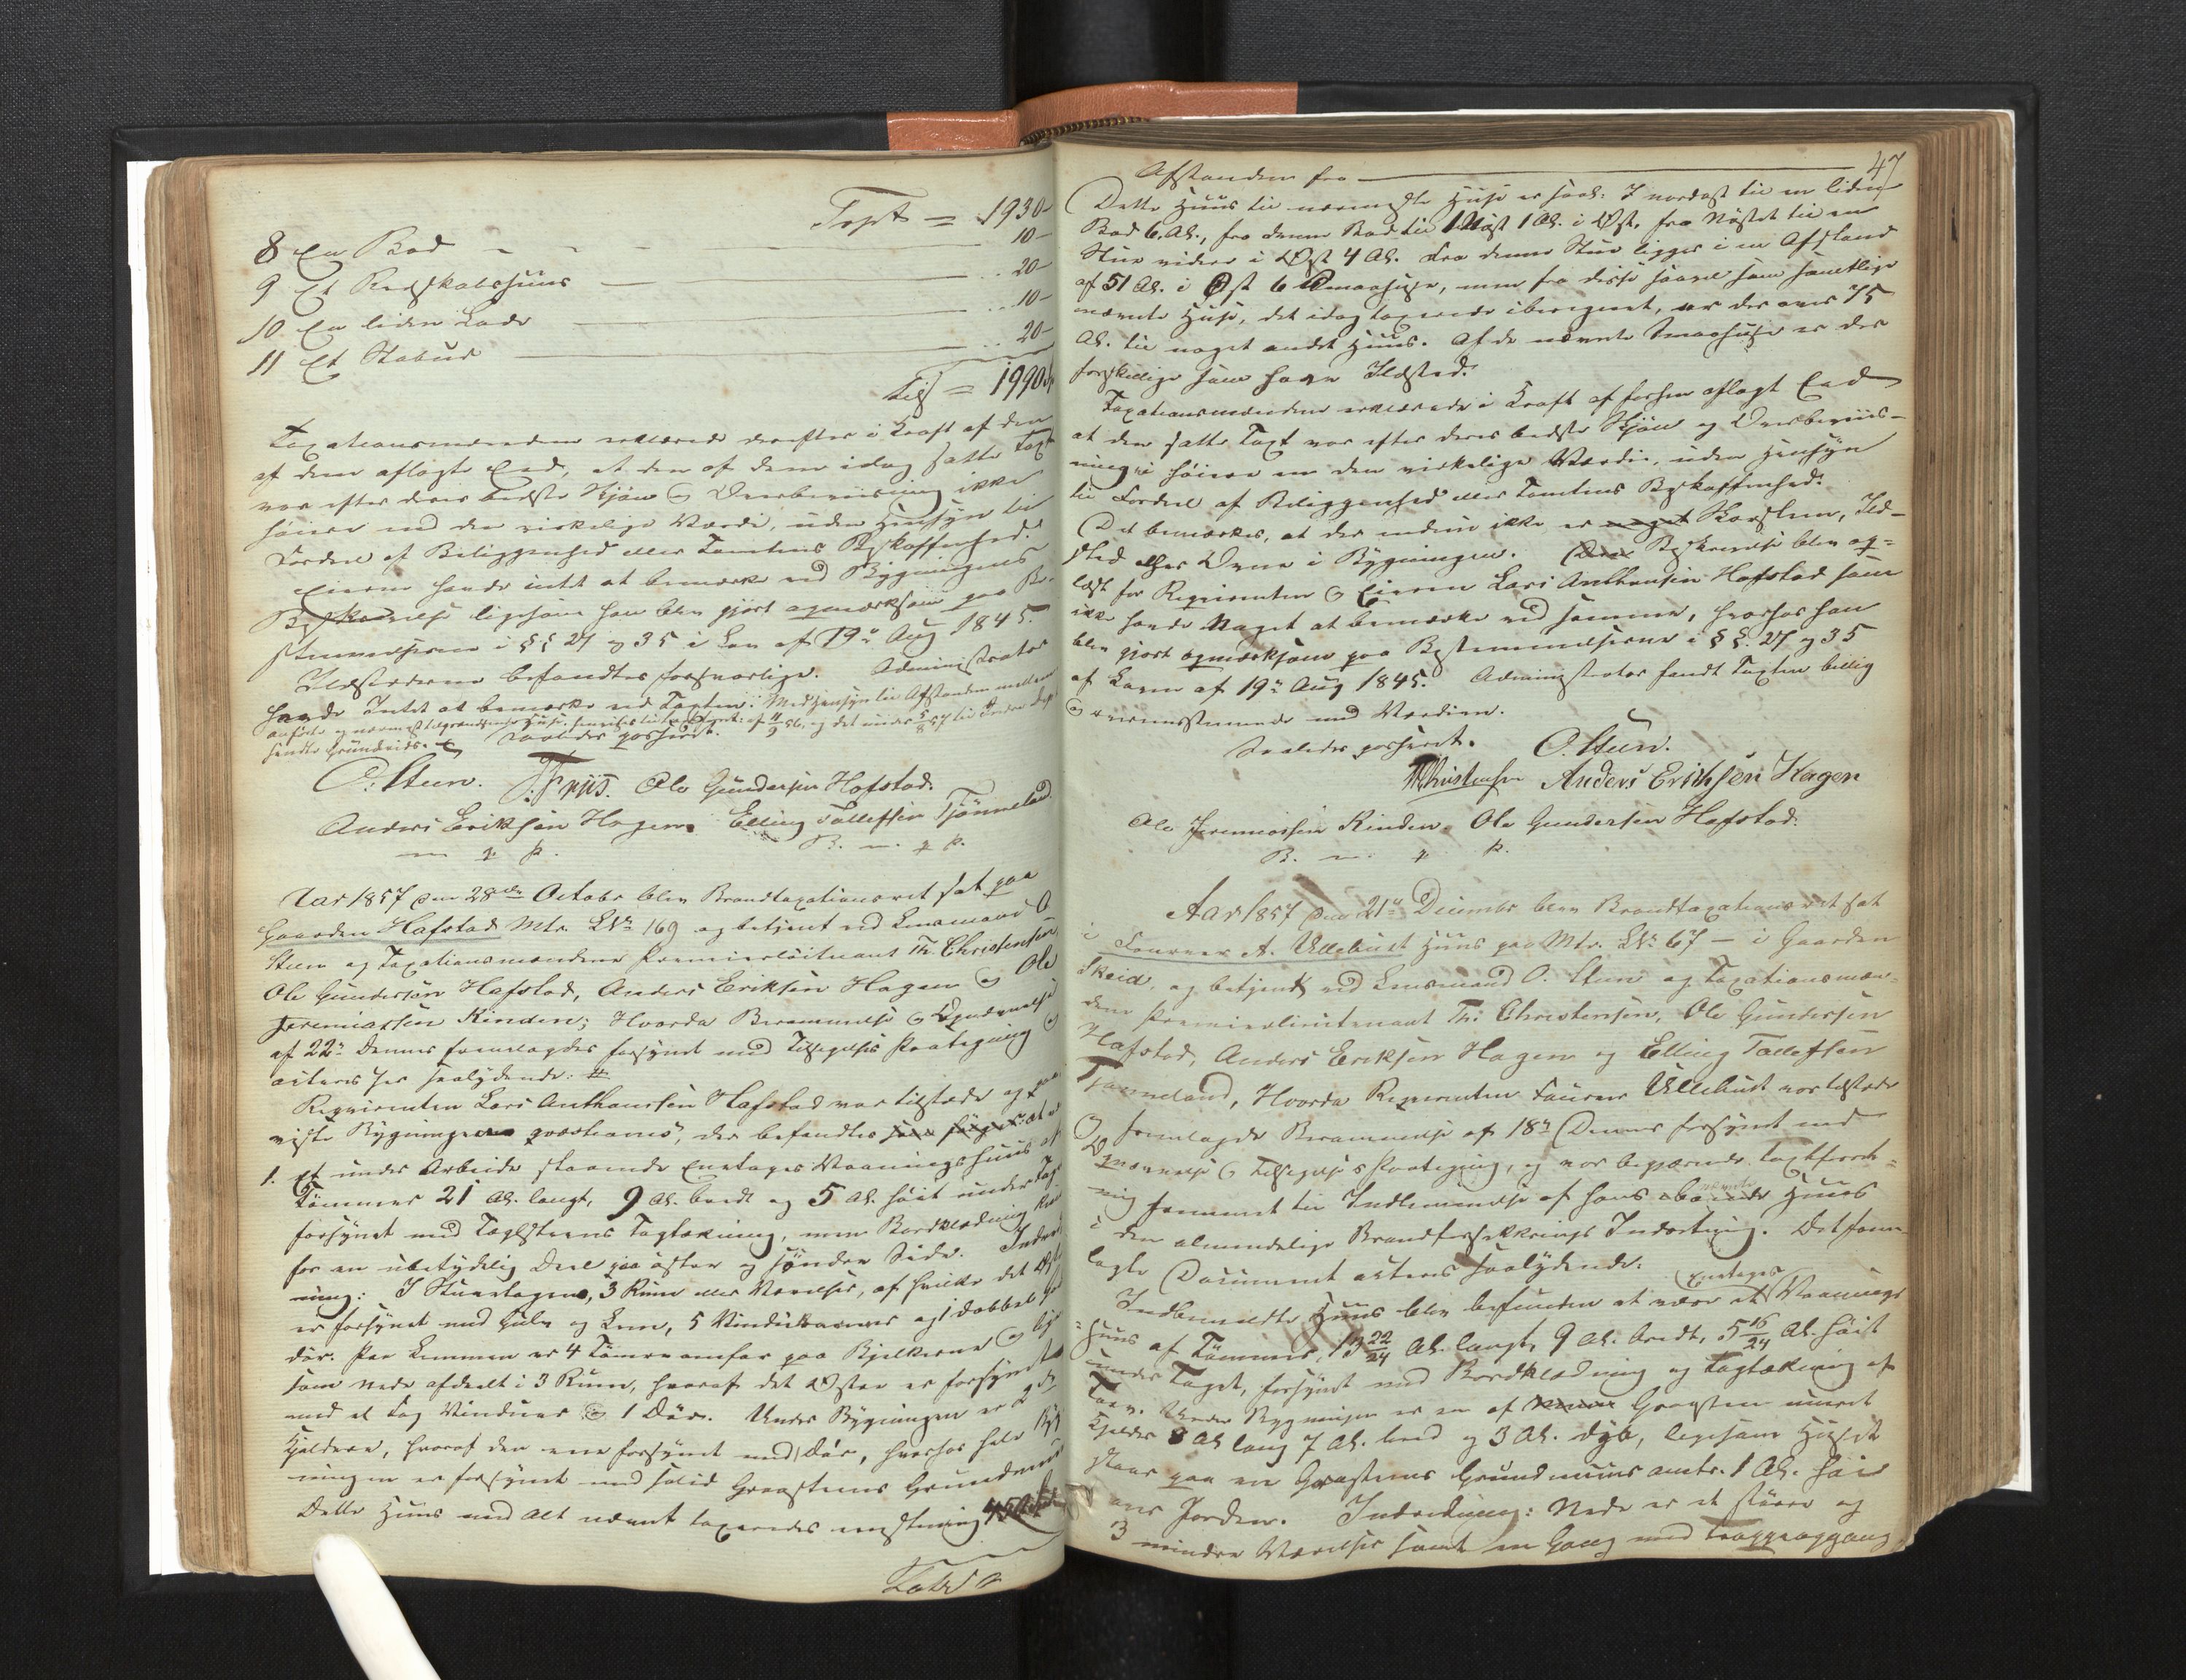 Tspt = 1930-
8 En Bod - - - 10-
9 Et Redskabshuus — 20-
10 En liden Lade — 10-
11 Et Stabur — 20-
Tils = 1990
Taxationsmændene erklærede derefter i Kraft af den
af dem aflagte Eed, at den af dem idag satte Taxt
var efter deres bedste Skjøn og Overbeviisning ikke
høiere end den virkelige Værdi, uden Hensyn til
Fordeel af Beliggenhed eller Tomtens Beskaffenhed.
Eieren havde intet at bemærke ved Bygningens
Beskrivelse ligesom han blev gjort opmærksom paa Be-
stemmelserne i §§ 27 og 35 i Lov af 19de Aug 1845.
Ildstederne befandtes forsvarlige. Administrator
havde Intet at bemærke ved Taxten. Med Hensyn til Afstanden mellem
anførte og nærmest tilgrændsende Huse,
sendte Grundrids. Saaledes passeret.
O. Steen. Friis. Ole Gundersen Hofstad.
Anders Eriksen Hagen. Elling Tollefsen Tjønneland
m. p. p. B. m. p. p.
Aar 1857 den 28de Octobr blev Brandtaxationsret sat paa
Gaarden Hafstad Mtr. LNo 169 og betjent ved Lensmand O
Steen og Taxationsmændene Premierløitnant Th. Christensen,
Ole Gundersen Hafstad, Anders Eriksen Hagen og Ole
Jeremiassen Kinden; Hvorda Berammelse og Opnævnelse
af 22de dennes fremlagdes forsynet med Tillegelses Paategning og
acteres her saalydende: #
Requirenten Lars Anthonsen Hafstad var tilstæde og paa
viste Bygningen qvæstionis, der befandtes at
1. Et under Arbeide staaende Eenetages Vaaningshuus af
Tømmer 21 Al. langt, 9 Al. bredt og 5 Al. høit under Tag
forsynet med Taglsteens Tagtækning, men Bordklædning kun
for en ubetydelig Deel paa østre og søndre Side. Indret
ning: I Stueetagen, 3 Rum eller Værelser, af hvilke det Østre
er forsynet med Gulv og Lem, 5 Vinduskarmer og 1 dobbel
dør. Paa Lemmen er 4 Tømmeromfar paa Bjelkerne og lige
som nede afdeelt i 3 Rum, hvoraf det Østre er forsynet
med et fag Vinduer og 1 Dør. Under Bygningen er 2de
Kjeldere, hvoraf den ene forsynet med Dør, hvorhos hele Byg
ningen er forsynet med solid Graasteens Grundmuur
Dette Huus med Alt nævnt taxeredes eenstemmig 450
Lateris
47
Afstanden fra —
Dette Huus til nærmeste Huse er saal: I nordøst til en liden
Bod 6. Al., fra denne Bod til 1 Nøst 1 Al. i Øst, fra Nøstet til en
Stue videre i Øst 4 Al. Fra denne Stue ligger i en Afstand
af 51 Al. i Øst 6 Smaahuse, men fra disse saavel som samtlige
nævnte Huse, det idag taxerede iberegnet, er der over 75
Al. til noget andet Huus. Af de nævnte Smaahuse er der
forskjellige som have Ildsted.
Taxationsmændene erklærede i Kraft af forhen aflagt Eed
at den satte Taxt var efter deres bedste Skjøn og Overbeviis-
ning ei høiere en den virkelige Værdie, uden Hensyn
til Fordeel af Beliggenhed eller Tomtens Beskaffenhed.
Det bemærkes, at der endnu ikke er Skorsteen, Ild-
sted eller Ovne i Bygningen. Beskrivelse blev op-
læst for Requirenten og Eieren Lars Anthonsen Hafstad som
ikke havde Noget at bemærke ved samme, hvorhos han
blev gjort opmærksom paa Bestemmelserne i §§. 27 og 35
af Loven af 19de Aug 1845. Administrator fandt Taxten billig
og overensstemmende med Værdien.
Saaledes passeret. O. Steen.
ThChristensen Anders Erichsen Hagen
Ole Jeremiassen Kinden. Ole Gundersen Hafstad.
B. m. p. p.
Aar 1857 den 21de Decembr blev Brandtaxationsret sat
i Fourer A. Ullebust Huus paa Mtr. LNo 67 — i Gaarden
Skeid, og betjent ved Lensmand O. Steen og Taxationsmæn-
dene Premierlieutenant Th: Christensen, Ole Gundersen
Hafstad, Anders Eriksen Hagen og Elling Tollefsen
Tjønneland, Hvorda Requirenten Fourer Ullebust var tilstæde
og fremlagde Berammelse af 18de Dennes forsynet med
Opnævnelse og Tillegelses Paategning, og var begjærende Taxtforret-
ning fremmet til Indlemmelse af hans Huus
i den almindelige Brandforsikkrings Indretning. Det frem-
lagte Document acteres saalydende:
Indbemeldte Huus blev befunden at være et Eenetages Vaanings
-huus af Tømmer, 13 22/24 Al. langt, 9 Al. bredt, 5 16/24 Al. høit
under Taget, forsynet med Bordklædning og Tagtækning af
Torv. Under Bygningen er en af Graasteen muret
Kjelder 8 Al lang 7 Al. bred og 3 Al. dyb, ligesom Huset
staar paa en Graasteens Grundmuur omtr. 1 Al. høi
over Jorden. Indretning: Nede er et større og
3 mindre Værelser samt en Gang med Trappeopgang